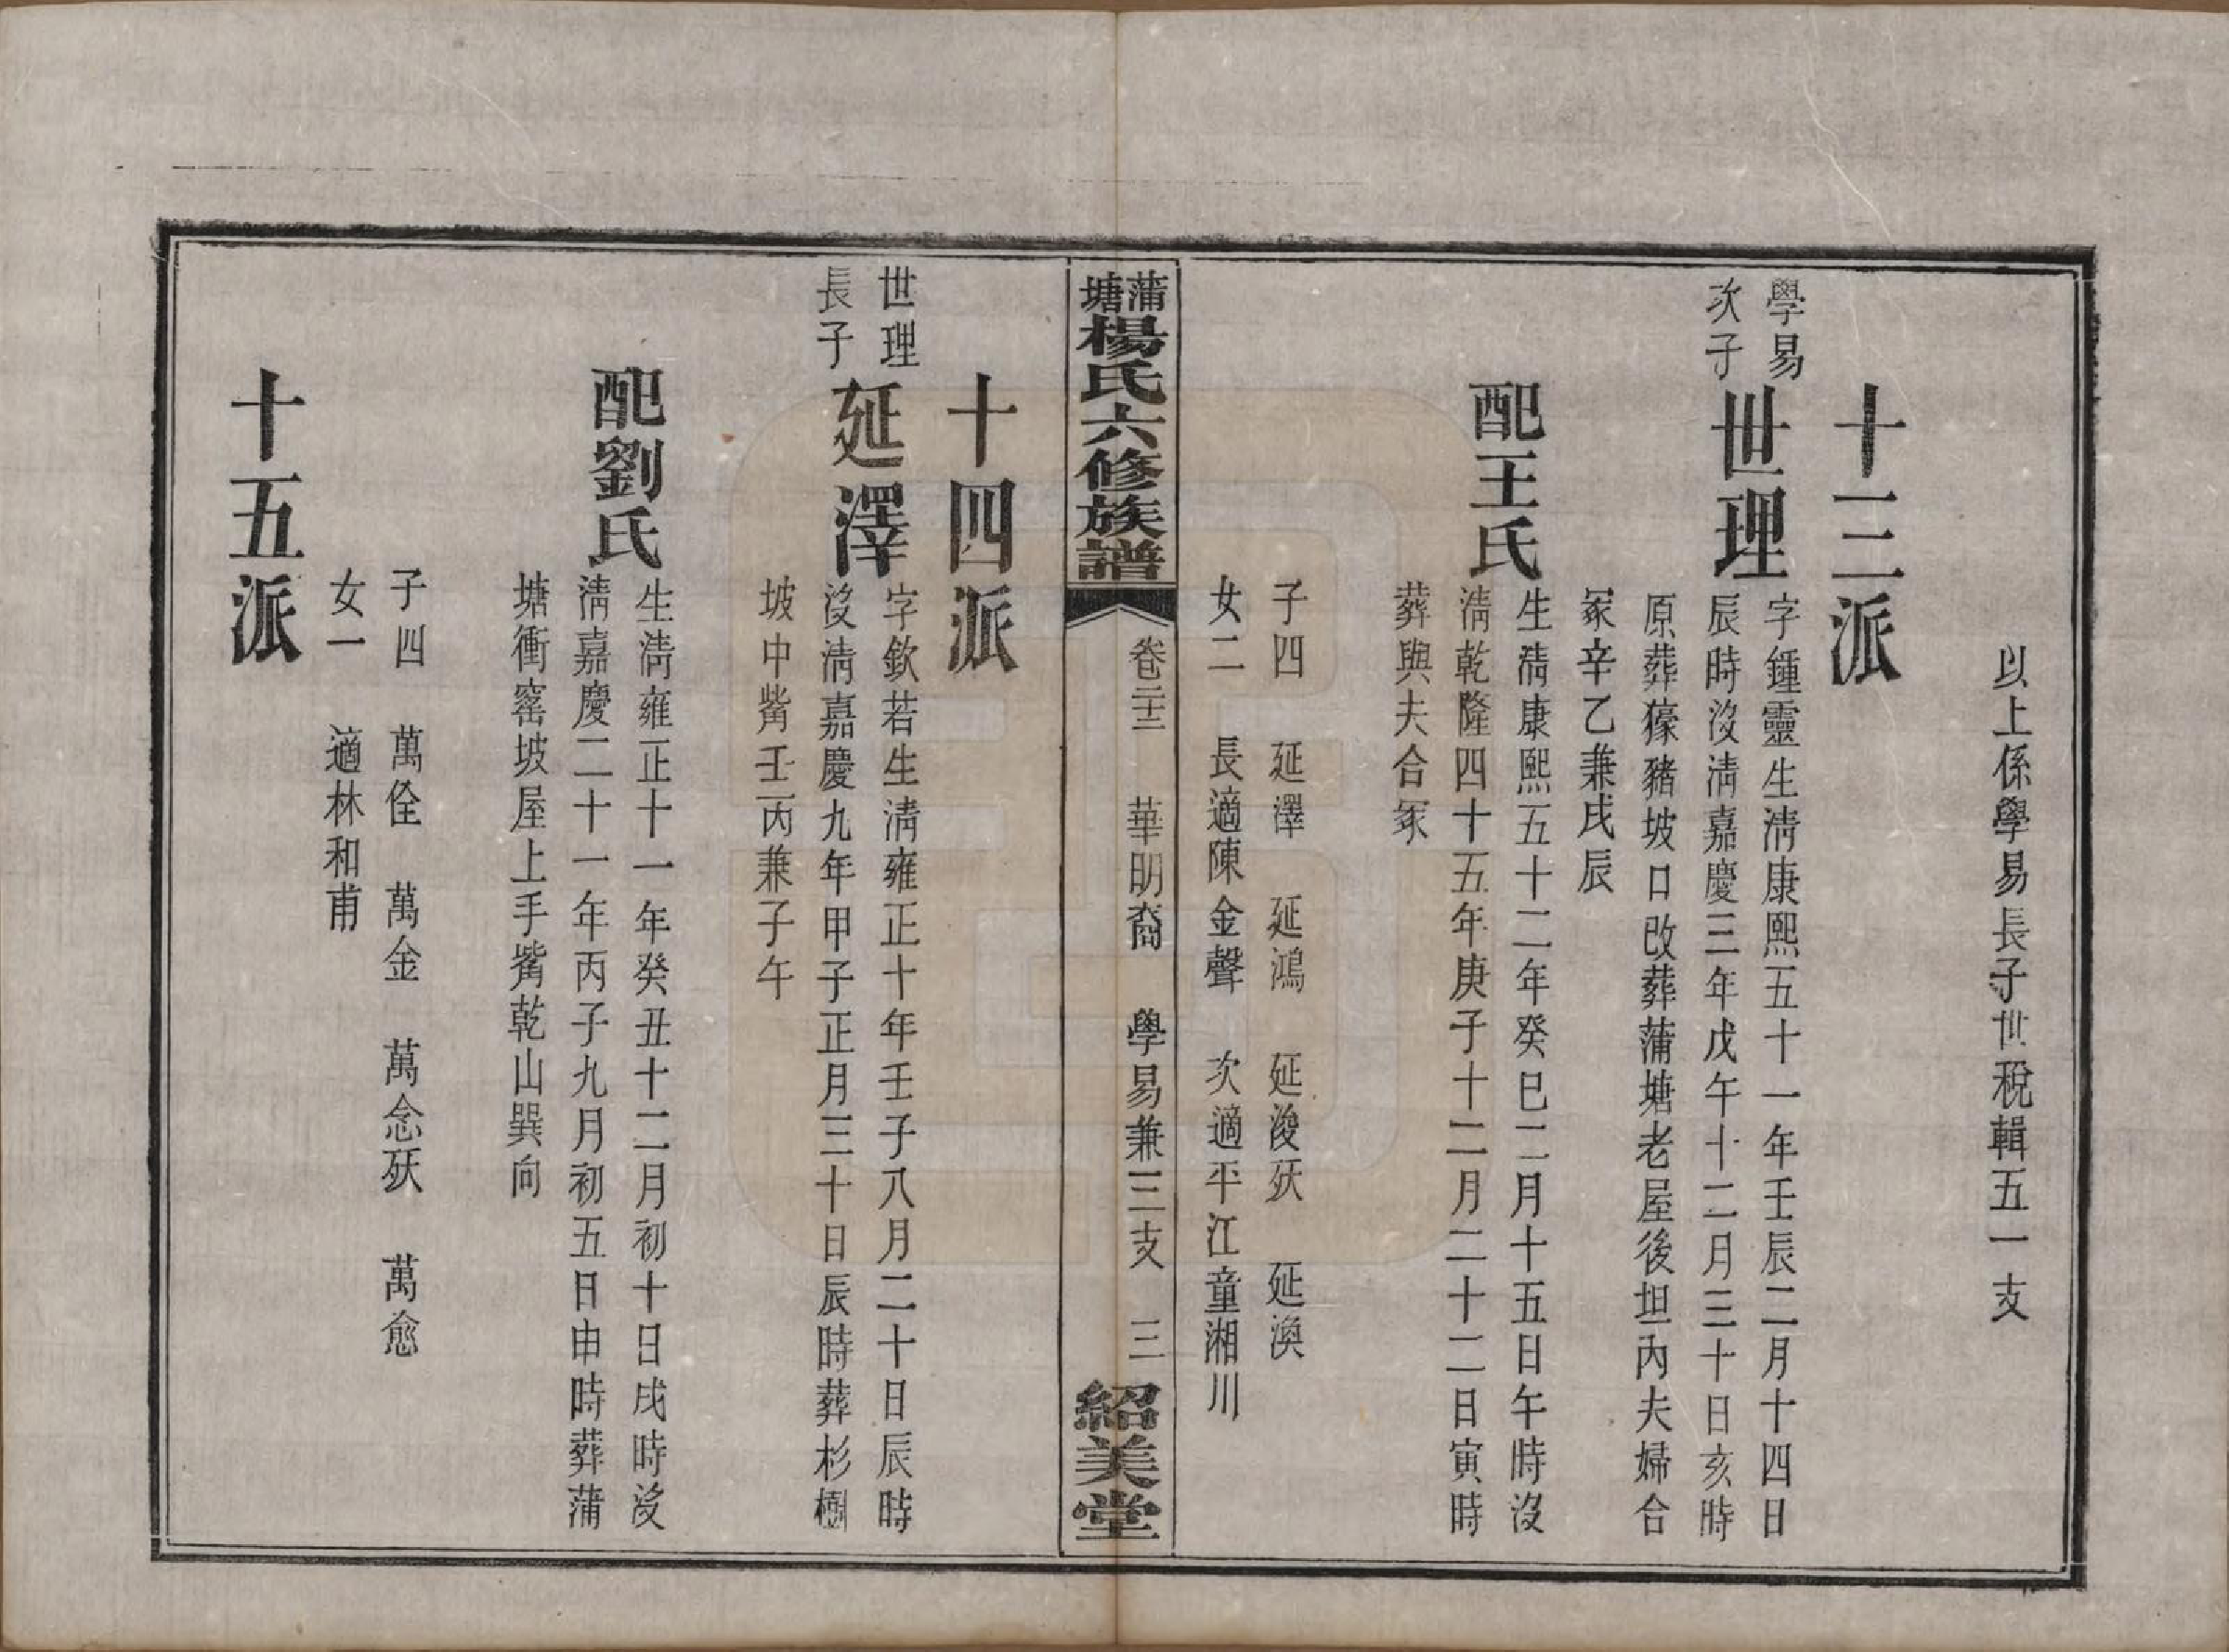 以上係學易長子世稅輯五一支
十三派
學易
次子
世理
字鍾靈生淸康熙五十一年壬辰二月十四日
辰時沒淸嘉慶三年戊午十二月三十日亥時
原葬豬坡口改葬蒲塘老屋後坦內夫婦合
冢辛乙兼戌辰
配王氏
生淸康熙五十二年癸巳二月十五日午時沒
淸乾隆四十五年庚子十二月二十二日寅時
葬與夫合冢
子四 延澤 延鴻 延浚殀 延渙
女二 長適陳金聲 次適平江童湘川
蒲塘楊氏六修族譜
卷二十三 華明裔 學易兼三支 三
紹美堂
十四派
世理
長子
延澤
字欽若生淸雍正十年壬子八月二十日辰時
沒淸嘉慶九年甲子正月三十日辰時葬杉樹
坡中嘴壬丙兼子午
配劉氏
生淸雍正十一年癸丑十二月初十日戌時沒
淸嘉慶二十一年丙子九月初五日申時葬蒲
塘衝窰坡屋上手嘴乾山巽向
子四 萬佺 萬金 萬念殀 萬愈
女一 適林和甫
十五派